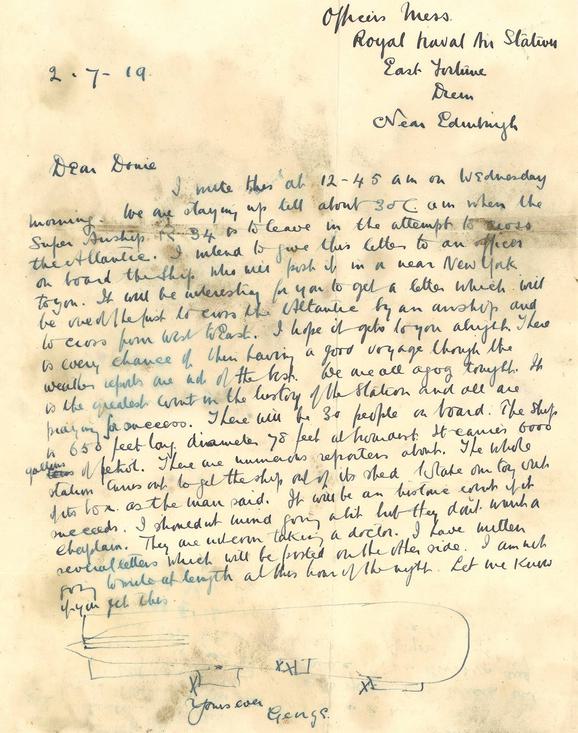 Officers Mess.
Royal Naval Air Station
East Fortune
Drem
Near Edinburgh
2-7-19.
Dear Donie
I write this at 12-45 am on Wednesday
morning. We are staying up till about 30C am when the
Super Airship R 34 is to leave in the attempt to cross
the Atlantic. I intend to give this letter to an officer
on board the Ship who will post it in a near New York
to you. It will be interesting for you to get a letter which will
be one of the first to cross the Atlantic by an airship and
to cross from West to East. I hope it gets to you alright There
is every chance of them having a good voyage though the
weather reports are not of the best. We are all agog tonight. It
is the greatest event in the history of the Station and all are
praying for success. There will be 30 people on board. The Ship
is 650 feet long, diameter 78 feet at broadest. It carries 6000
gallons of petrol. There are numerous reporters about. The whole
station turns out to get the ship out of its shed to take one toy out
of its box as the man said. It will be an historic event if it
succeeds. I shouldnt mind going a bit but they don't want a
Chaplain. They are not even taking a doctor. I have written
several letters which will be posted on the other side. I am not
going to write at length at this hour of the night. Let me know
if you get this.
Yours ever
George.